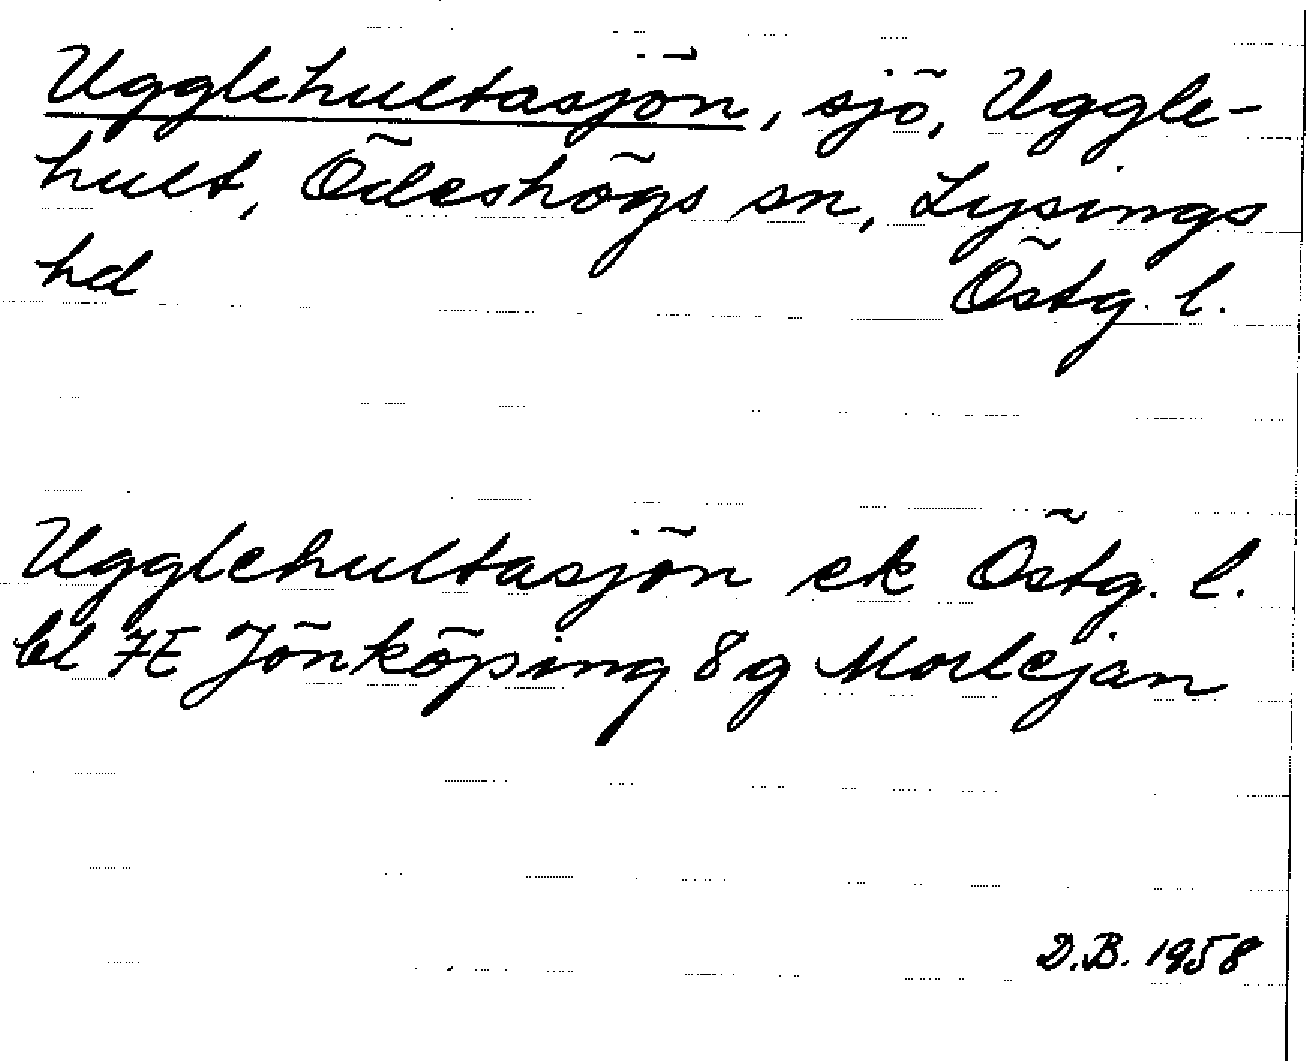 Ugglehultasjön, sjö, Uggle-
hult, Ödeshögs sn, Lysings
hd Östg. l.
Ugglehultasjön ek Östg. l.
bl 7E Jönköping 8 g Morlejan
D.B. 1958